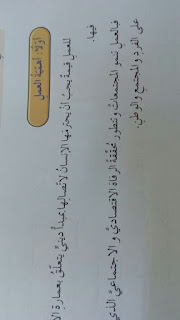 أوّلًا: أهميّةُ العمل
للعملِ قيمةٌ يجبُ أنْ يحترمَها الإنسانُ لاتّصالِها بمبدأٍ دينيٍّ يتعلّقُ بعمارةِ
فيها.
فبالعملِ تنمو المجتمعاتُ وتتطوّر مُحقِّقةً الرفاهَ الاقتصاديَّ والاجتماعيَّ الذي
على الفردِ والمجتمعِ والوطنِ.